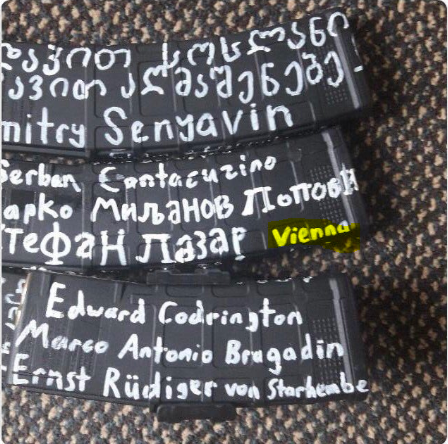 დავით სოსლანი
დავით აღმაშენებე
mitry Senyavin
Serban Cantacuzino
арко Миљанов Попови
тефан Лазар Vienna
Edward Codrington
Marco Antonio Bragadin
Ernst Rüdiger von Starhembe